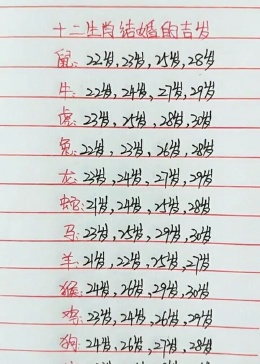 十二生肖结婚的吉岁
鼠:22岁,23岁,25岁,28岁
牛:22岁,24岁,27岁,29岁
虎:23岁,25岁,28岁,30岁
兔:22岁,23岁,26岁,28岁
龙:23岁,24岁,27岁,29岁
蛇:21岁,24岁,25岁,28岁
马:23岁,25岁,29岁,30岁
羊:21岁,22岁,25岁,27岁
猴:24岁,26岁,29岁,30岁
鸡:23岁,24岁,26岁,29岁
狗:24岁,26岁,27岁,28岁